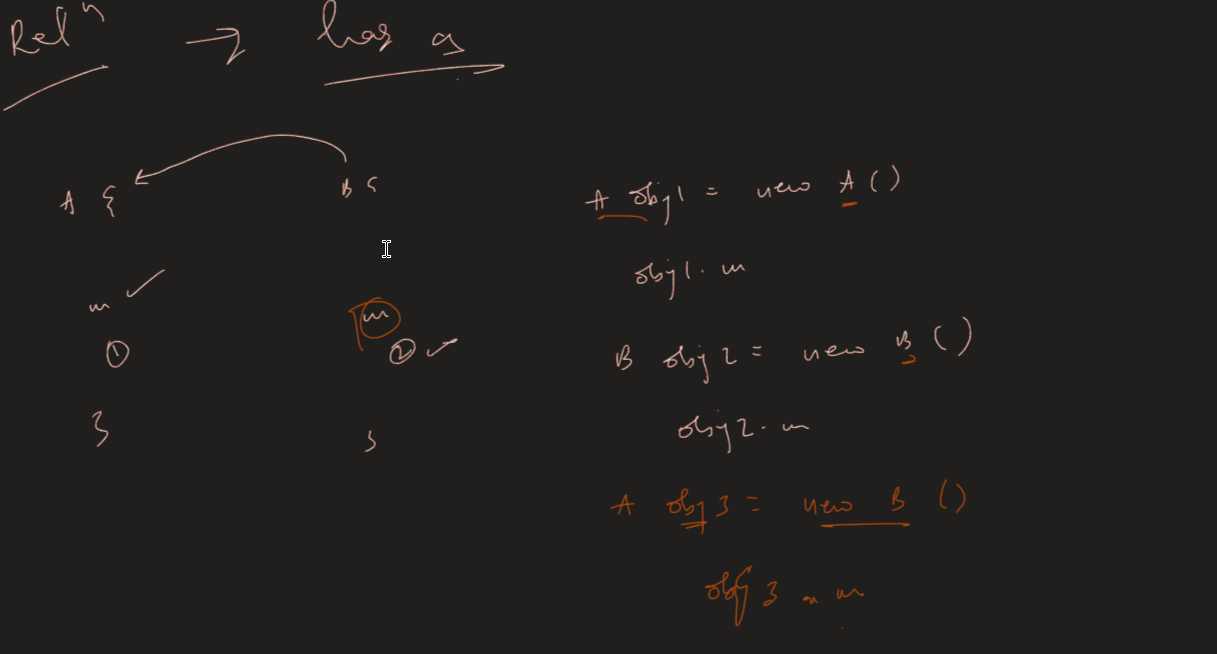 Relⁿ → has a
A {
B {
m ✓
m
①
② ✓
}
}
A obj1 = new A ()
obj1. m
B obj2 = new B ()
obj2. m
A obj3 = new B ()
obj3 . m